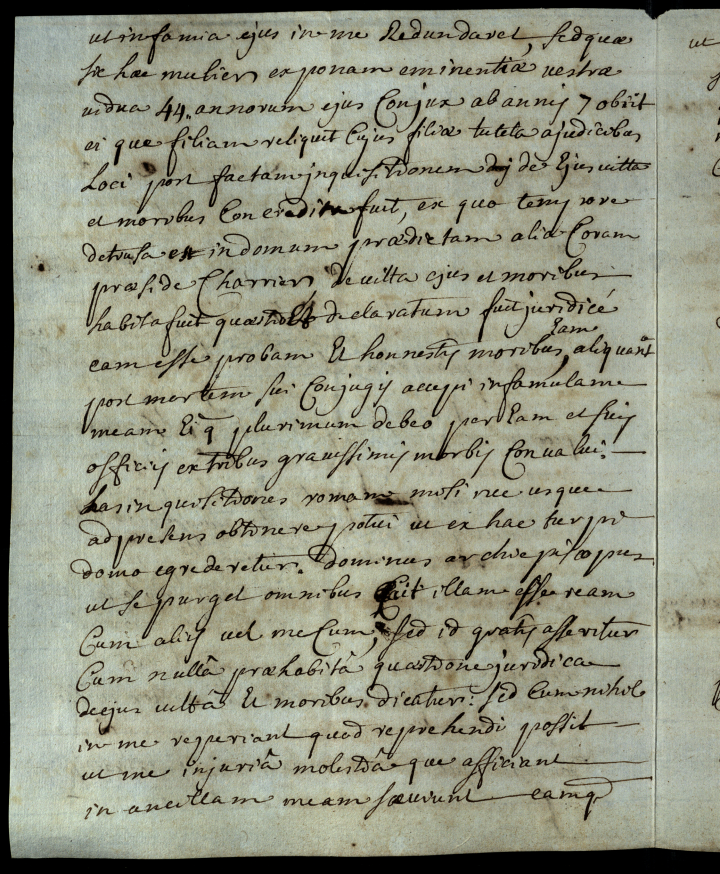 ut infamia ejus in me Redundaret, sed quæ
sit hæc mulier exponam eminentiæ vestræ
vidua 44. annorum ejus Conjux ab annis 7 obiit
ei que filiam reliquit Cujus filiæ tutela a judicibus
Loci post factam inquisitionem de Ejus vitta
et moribus Concredita fuit, ex quo tempore
detrusa est in domum prædictam aliæ Coram
præside Charrier, de vitta ejus et moribus
habita fuit quæstio Et declaratum fuit juridicé
eam esse probam Et honnestis moribus, Eam aliquant
post mortem sui Conjugis accepi in famulam
meam Ei q plurimum debeo per Eam et suis
officiis ex tribus gravissimis morbis Convalui.
has inquisitiones romam misi nec usque
ad presens obtinere potui ut ex hac turpi
domo egrederetur. Dominus archiepiscopus
ut se purget omnibus ait illam esse ream
Cum aliis vel mecum, sed id gratis asseritur
Cum nullâ præhabitâ quæstione juridica
de ejus vittâ Et moribus dicatur: sed Cum nihil
in me reperiant quod reprehendi possit
ut me injuriâ molestiâ que afficiant
in ancillam meam sæviunt eamq